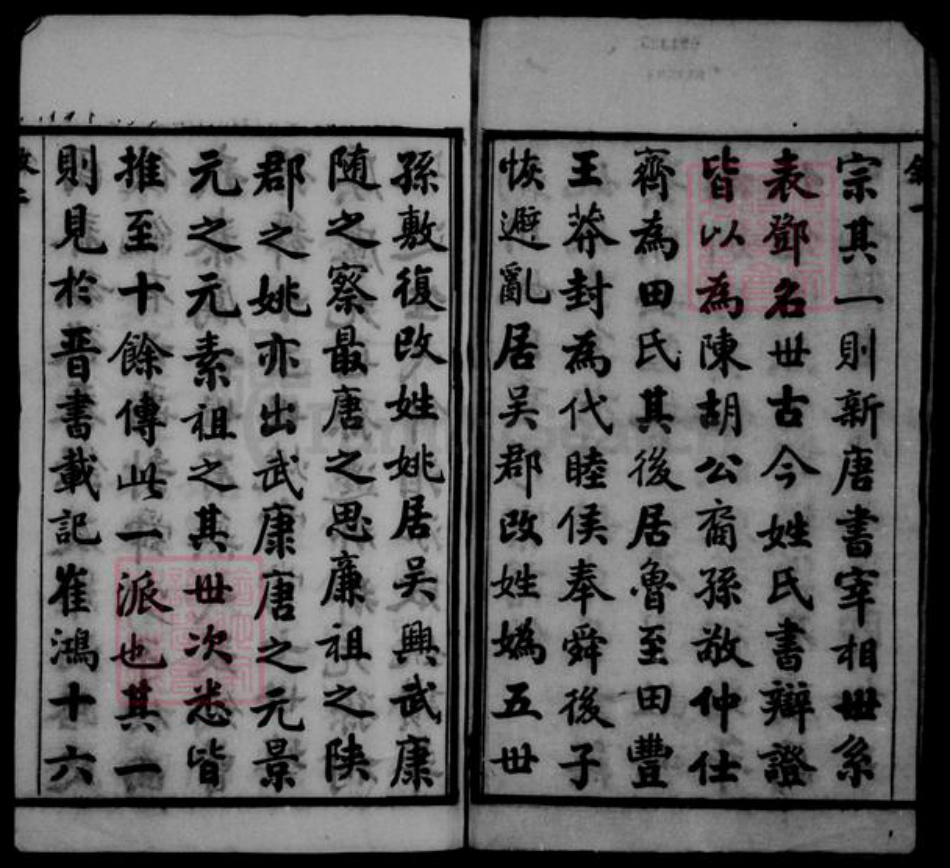 宗其一則新唐書宰相世系
表鄧名世古今姓氏書辯證
皆以為陳胡公裔孫敬仲仕
齊為田氏其後居魯至田豐
王莽封為代睦侯奉舜後子
恢避亂居吴郡改姓媯五世
孫敷復改姓姚居吴興武康
随之察最唐之思廉祖之陝
郡之姚亦出武康唐之元景
元之元素祖之其世次悉皆
推至十餘傳此一派也其一
則見於晉書載記崔鴻十六